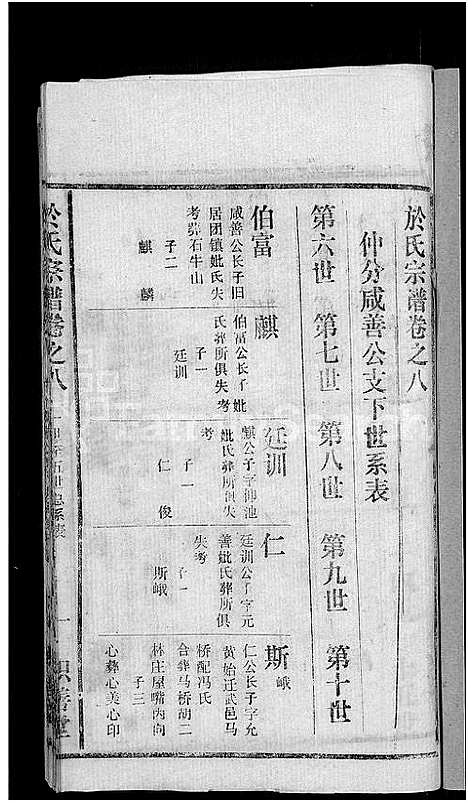 於氏宗谱卷之八
仲分咸善公支下世系表
第六世 第七世 第八世 第九世 第十世
伯富
咸善公长子旧
居团镇妣氏失
考葬石牛山
子二
麒 麟
麒
伯富公长子妣
氏葬所俱失考
子一
廷训
廷训
麒公子字仰池
妣氏葬所俱失
考
子一
仁俊
仁
廷训公子字元
善妣氏葬所俱
失考
子一
斯峨
斯峨
仁公长子字允
黄始迁武邑马
桥配冯氏
合葬马桥胡二
林庄屋嘴丙向
子三
心彝 心美 心印
於氏宗谱卷之八
世系表
一
善堂